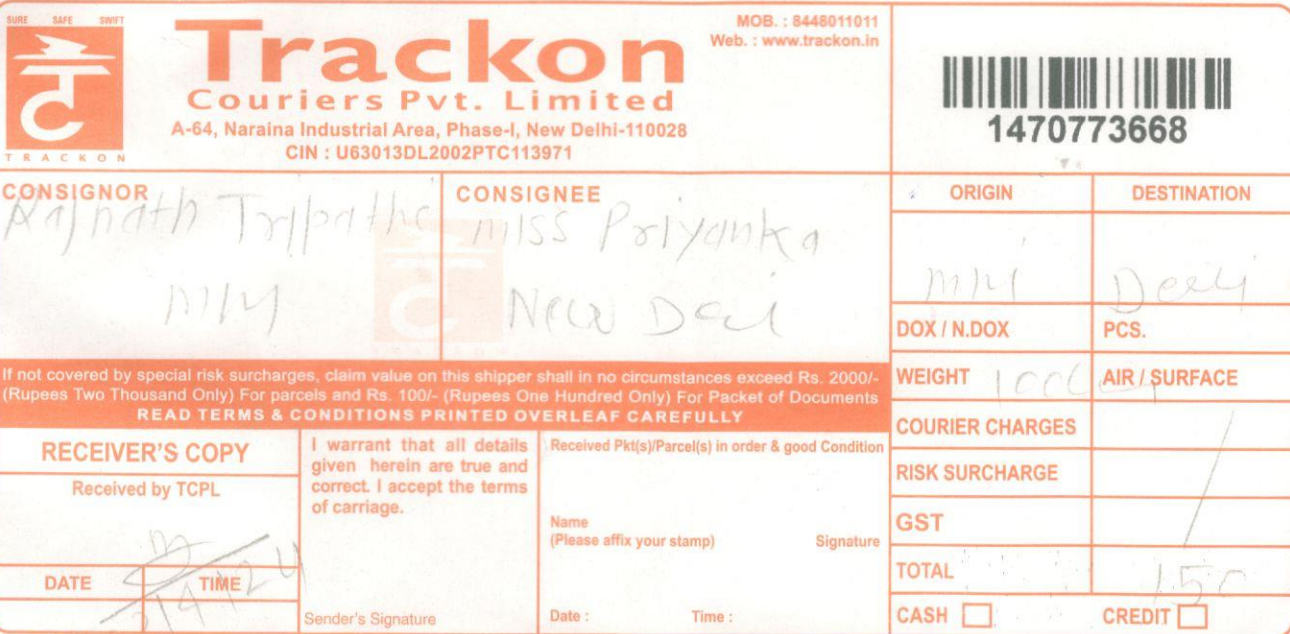 SURE SAFE SWIFT
TRACKON
Trackon
Couriers Pvt. Limited
A-64, Naraina Industrial Area, Phase-I, New Delhi-110028
CIN : U63013DL2002PTC113971
MOB. : 8448011011
Web. : www.trackon.in
1470773668
CONSIGNOR
Rajnath Tripathi
CONSIGNEE
Miss Priyanka
New Del
ORIGIN
DESTINATION
DOX / N.DOX
PCS.
WEIGHT
AIR / SURFACE
COURIER CHARGES
RISK SURCHARGE
GST
TOTAL
CASH
CREDIT
If not covered by special risk surcharges, claim value on this shipper shall in no circumstances exceed Rs. 2000/-
(Rupees Two Thousand Only) For parcels and Rs. 100/- (Rupees One Hundred Only) For Packet of Documents
READ TERMS & CONDITIONS PRINTED OVERLEAF CAREFULLY
RECEIVER'S COPY
Received by TCPL
DATE
TIME
I warrant that all details
given herein are true and
correct. I accept the terms
of carriage.
Sender's Signature
Received Pkt(s)/Parcel(s) in order & good Condition
Name
(Please affix your stamp)
Signature
Date :
Time :